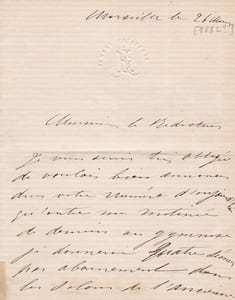 Marseille le 26 Mars
[1882]
Monsieur le Rédacteur
Je vous serais très obligé
de vouloir bien annoncer
dans votre numéro d'aujourd'hui
que outre ma matinée
de demain au gymnase
je donnerai Quatre
par abonnement dans
les Salons de l'ancienne